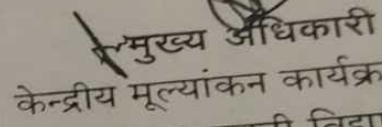 मुख्य अधिकारी
केन्द्रीय मूल्यांकन कार्यक्र